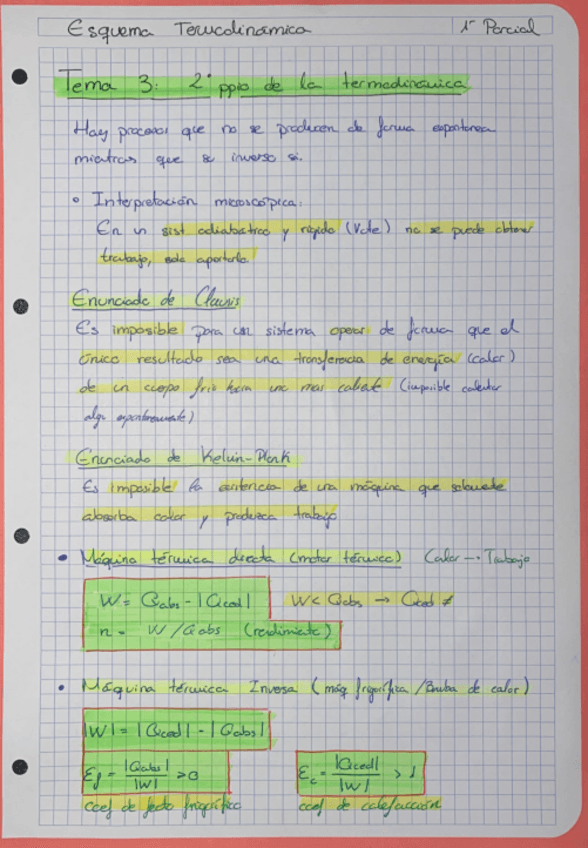 Esquema Termodinámica 1er Parcial
Tema 3: 2º ppio de la termodinámica
Hay procesos que no se producen de forma espontanea
mientras que el inverso si.
• Interpretación microscópica:
En un sist adiabatico y rigido (V cte) no se puede obtener
trabajo, solo aportarlo.
Enunciado de Clausis
Es imposible para un sistema operar de forma que el
único resultado sea una transferencia de energía (calor)
de un cuerpo frio hacia uno mas caliente (imposible calentar
algo espontaneamente)
Enunciado de Kelvin-Plank
Es imposible la existencia de una máquina que solamente
absorba calor y produzca trabajo
• Máquina térmica directa (motor térmico) Calor → Trabajo
W = Qabs - |Qced| W < Qabs → Qced ≠
n = W/Qabs (rendimiento)
• Máquina térmica Inversa (máq frigorífica / Bomba de calor)
|W| = |Qced| - |Qabs|
Ef = |Qabs| / |W| > 0 Ec = |Qced| / |W| > 1
coef de efecto frigorífico coef de calefacción